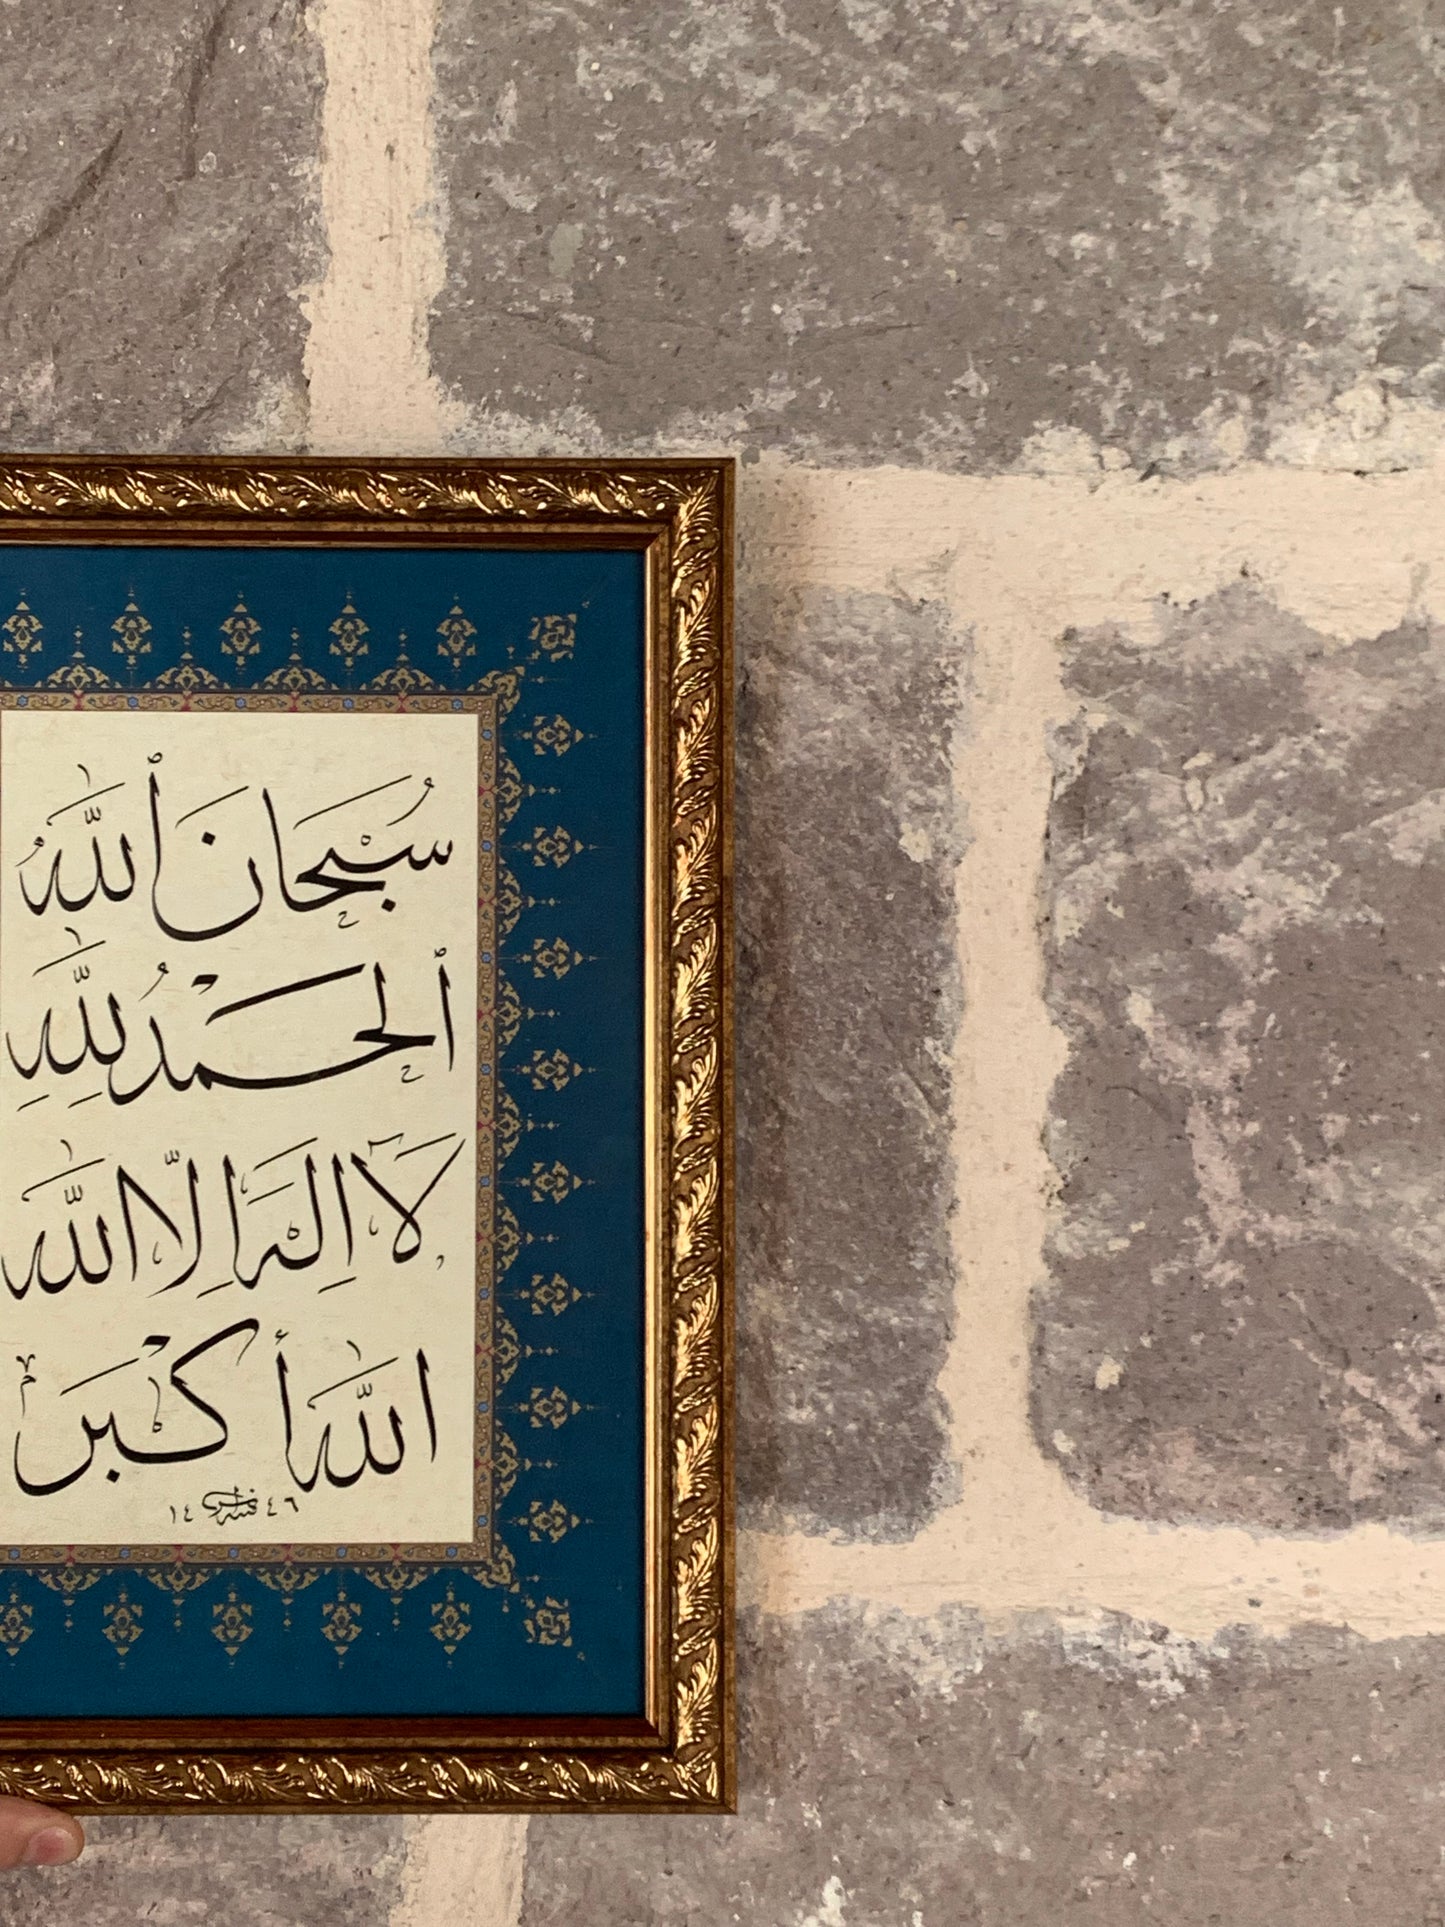 سُبْحَانَ ٱللّٰهُ
ٱلْحَمْدُ لِلّٰهِ
لَا اِلٰهَ اِلَّا اللّٰه
اللّٰه أَكْبَر
١٤ ٤٦